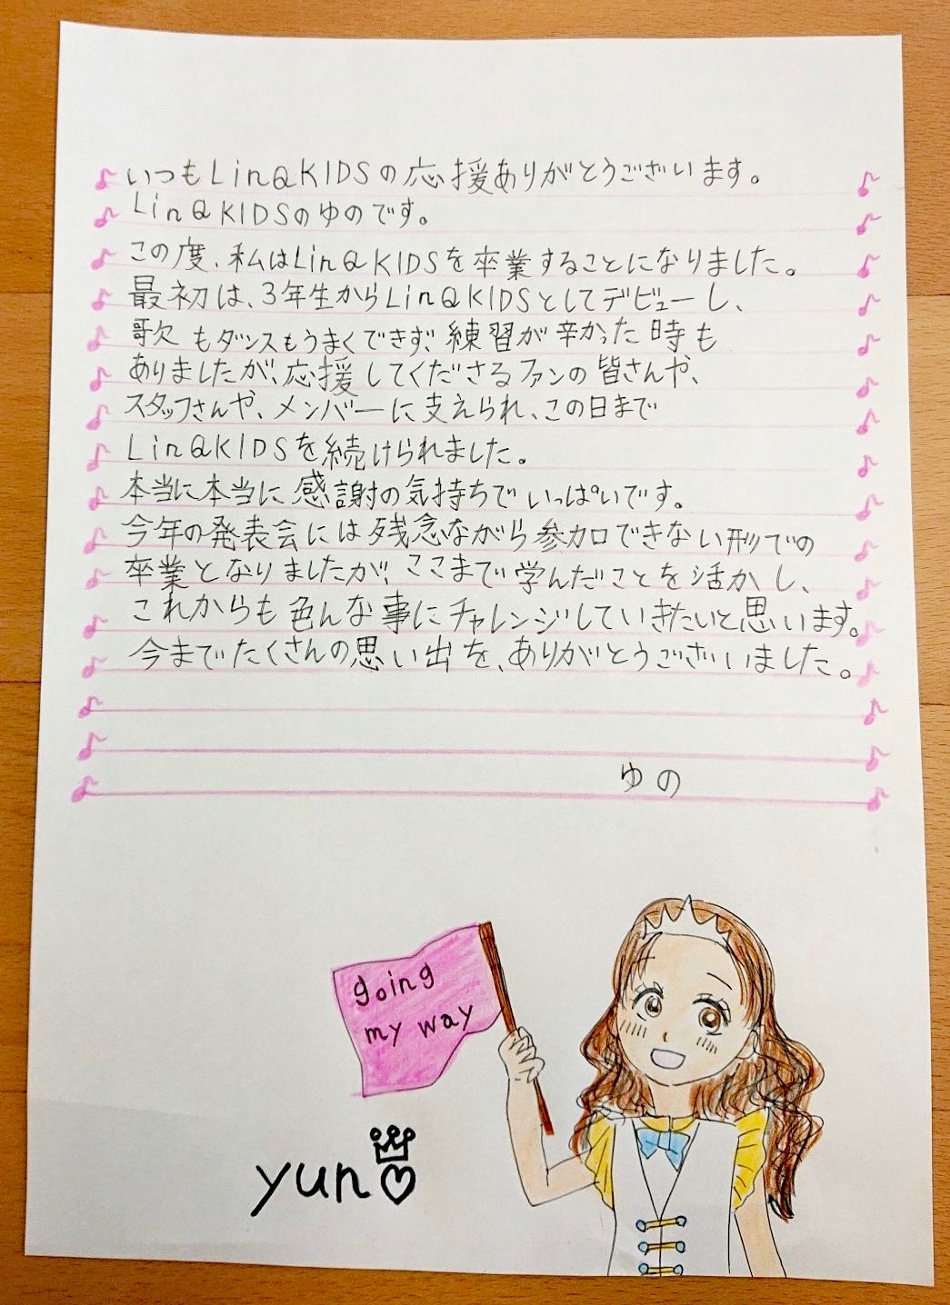 いつもLinQKIDSの応援ありがとうございます。
LinQKIDSのゆのです。
この度、私はLinQKIDSを卒業することになりました。
最初は、3年生からLinQKIDSとしてデビューし、
歌もダンスもうまくできず、練習が辛かった時も
ありましたが、応援してくださるファンの皆さんや、
スタッフさんや、メンバーに支えられ、この日まで
LinQKIDSを続けられました。
本当に本当に感謝の気持ちでいっぱいです。
今年の発表会には残念ながら参加できない形での
卒業となりましたが、ここまで学んだことを活かし、
これからも色んな事にチャレンジしていきたいと思います。
今までたくさんの思い出を、ありがとうございました。
ゆの
going
my way
yuno